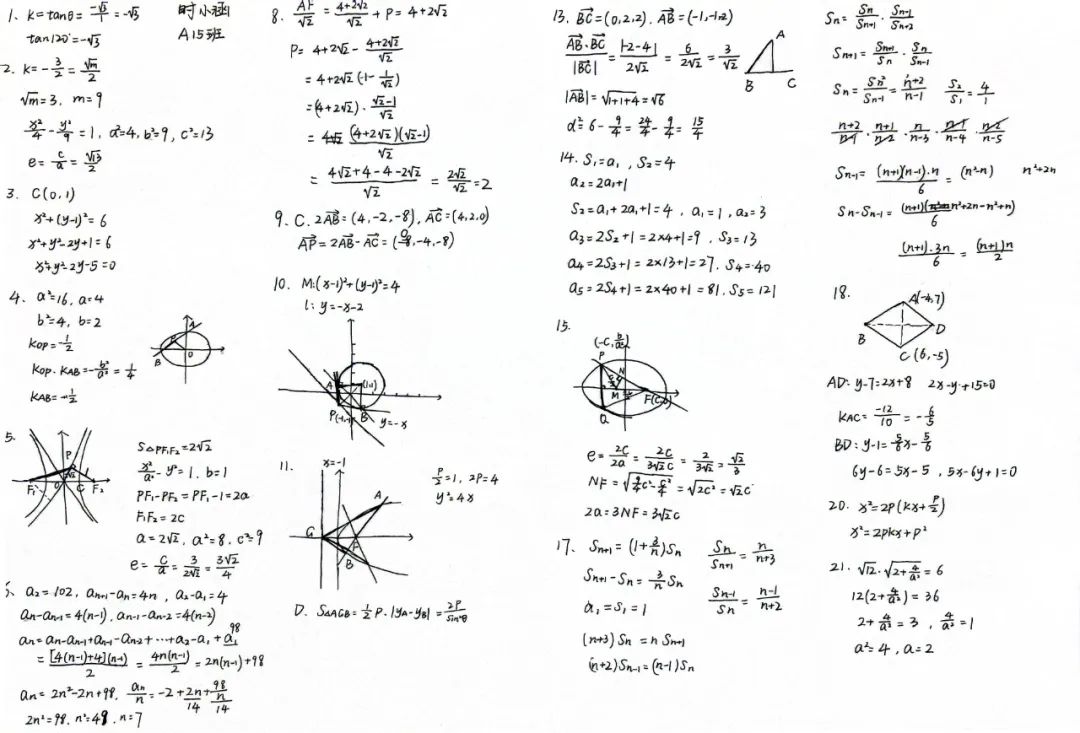 1. k=tanθ=-√3/1=-√3
时小涵
A15班
tan120°=-√3
2. k=-3/2=√m/2
√m=3, m=9
x²/4-y²/9=1, a²=4, b²=9, c²=13
e=c/a=√13/2
3. C(0,1)
x²+(y-1)²=6
x²+y²-2y+1=6
x²+y²-2y-5=0
4. a²=16, a=4
b²=4, b=2
kop=-1/2
kop·kAB=-b²/a²=1/4
kAB=+1/2
A
B
O
5.
P
F₁
O
C
F₂
S△PF₁F₂=2√2
x²/a²-y²=1, b=1
PF₁-PF₂=PF₁-1=2a
F₁F₂=2c
a=2√2, a²=8, c²=9
e=c/a=3/2√2=3√2/4
a₂=102, an+1-an=4n, a₂-a₁=4
an-an-1=4(n-1), an-1-an-2=4(n-2)
an=an-an-1+an-1-an-2+…+a₂-a₁+a₁ 98
=[4(n-1)+4](n-1)/2=4n(n-1)/2=2n(n-1)+98
an=2n²-2n+98, an/n=-2+2n+98/n
14 14
2n²=98, n²=49, n=7
8. AF/√2=4+2√2/√2+P=4+2√2
P=4+2√2-4+2√2/√2
=4+2√2(-1-1/√2)
=(4+2√2)·√2-1/√2
=(4+2√2)(√2-1)/√2
=4√2+4-4-2√2/√2=2√2/√2=2
9. C. 2AB=(4,-2,-8), AC=(4,2,0)
AP=2AB-AC=(0,-4,-8)
10. M:(x-1)²+(y-1)²=4
l: y=-x-2
A
(1,1)
P(-1,-1)
B
y=-x
11.
x=-1
P/2=1, 2P=4
y²=4x
G
A
F
B
D. S△AGB=1/2 P·|yA-yB|=2P/sinθ
13. BC=(0,2,2), AB=(-1,-1,2)
AB·BC/|BC|=|-2-4|/2√2=6/2√2=3/√2
A
B C
|AB|=√1+1+4=√6
d²=6-9/4=24/4-9/4=15/4
14. S₁=a₁, S₂=4
a₂=2a₁+1
S₂=a₁+2a₁+1=4, a₁=1, a₂=3
a₃=2S₂+1=2×4+1=9, S₃=13
a₄=2S₃+1=2×13+1=27, S₄=40
a₅=2S₄+1=2×40+1=81, S₅=121
15.
P
N
M
F(C,0)
Q
e=2c/2a=2c/3√2c=2/3√2=√2/3
NF=√9/4c²-c²/4=√2c²=√2c
2a=3NF=3√2c
17. Sn+1=(1+3/n)Sn
Sn/Sn+1=n/n+3
Sn+1-Sn=3/n Sn
Sn-1/Sn=n-1/n+2
a₁=S₁=1
(n+3)Sn=nSn+1
(n+2)Sn-1=(n-1)Sn
Sn=Sn/Sn+1·Sn-1/Sn+2
Sn+1=Sn+1/Sn·Sn/Sn-1
Sn=Sn²/Sn-1=n+2/n-1 S₂/S₁=4/1
n+2/n-1·n+1/n-2·n/n-3·n-1/n-4·n-2/n-5
Sn-1=(n+1)(n-1)·n/6=(n²-n) n²+2n
Sn-Sn-1=(n+1)(n²+2n-n²+n)/6
(n+1)·3n/6=(n+1)n/2
18.
A(-4,7)
B
D
C(6,-5)
AD: y-7=2x+8 2x-y+15=0
kAC=-12/10=-6/5
BD: y-1=5/6x-5/6
6y-6=5x-5, 5x-6y+1=0
20. x²=2P(kx+P/2)
x²=2Pkx+P²
21. √12·√2+4/a²=6
12(2+4/a²)=36
2+4/a²=3, 4/a²=1
a²=4, a=2